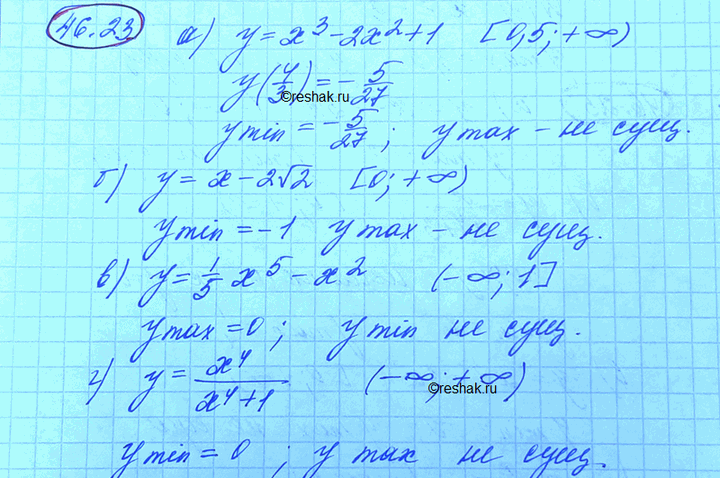 46.23 а) y = x³ - 2x² + 1 [0,5; +∞)
y(4/3) = -5/27
©reshak.ru
y min = -5/27; y max - не сущ.
б) y = x - 2√2 [0; +∞)
y min = -1 y max - не сущ.
в) y = 1/5 x⁵ - x² (-∞; 1]
y max = 0; y min не сущ.
г) y = x⁴/(x⁴+1) (-∞; +∞)
©reshak.ru
y min = 0; y max не сущ.